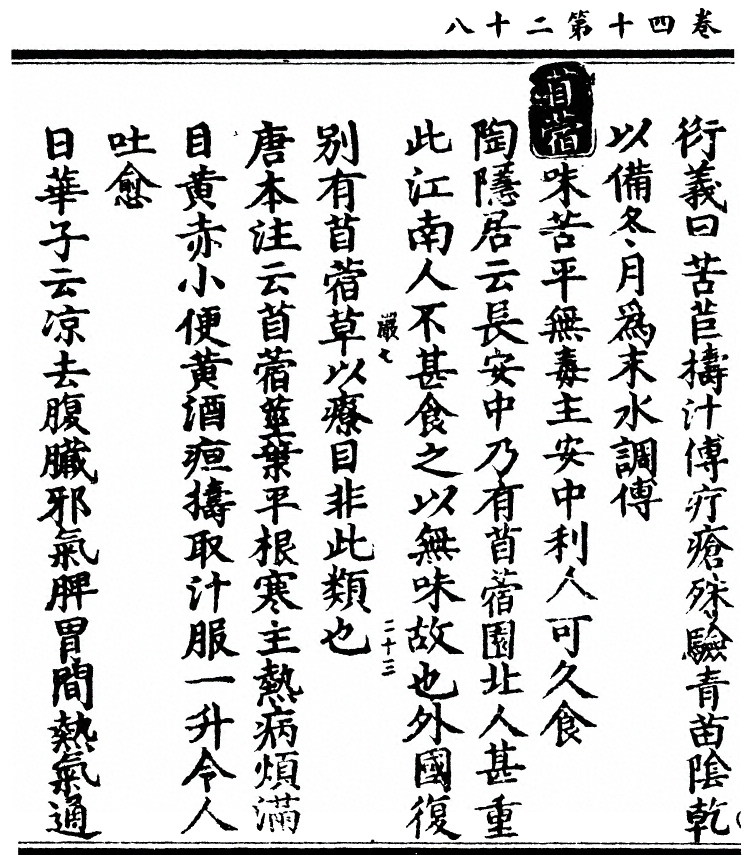 卷四十第二十八
衍義曰苦苣擣汁傅疔瘡殊驗青苗陰乾
以備冬月爲末水調傅
苜蓿味苦平無毒主安中利人可久食
陶隱居云長安中乃有苜蓿園北人甚重
此江南人不甚食之以無味故也外國復
嚴七
二十三
别有苜蓿草以療目非此類也
唐本注云苜蓿莖葉平根寒主熱病煩滿
目黄赤小便黄酒疸擣取汁服一升令人
吐愈
日華子云凉去腹臟邪氣脾胃間熱氣通